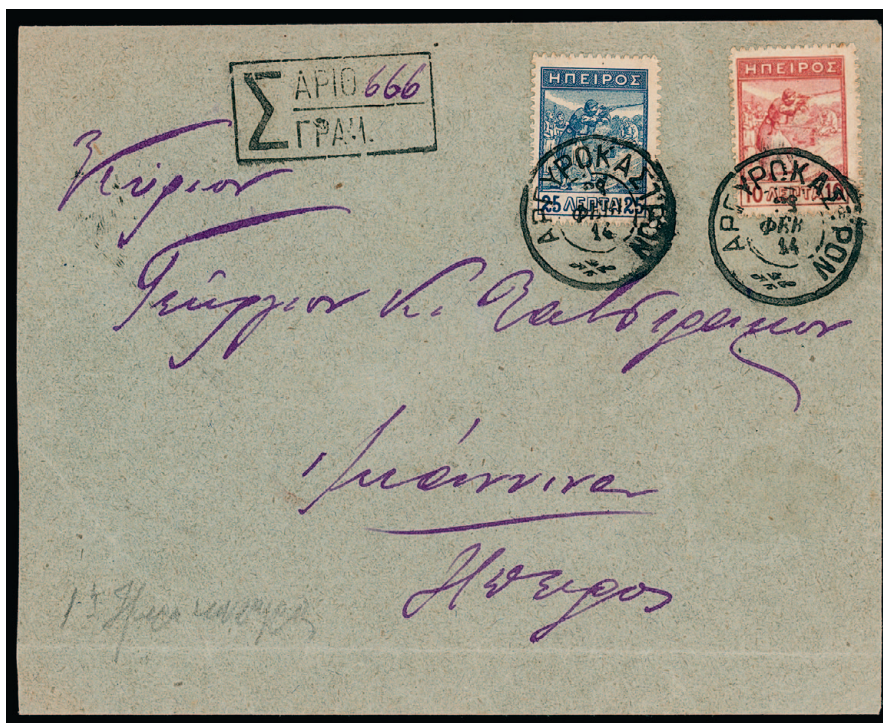 Σ ΑΡΙΘ. 666
ΓΡΑΜ.
ΗΠΕΙΡΟΣ
25 ΛΕΠΤΑ 25
ΗΠΕΙΡΟΣ
10 ΛΕΠΤΑ 10
ΑΡΓΥΡΟΚΑΣΤΡΟΝ
ΦΕΒ
14
ΑΡΓΥΡΟΚΑΣΤΡΟΝ
ΦΕΒ
14
Κύριον
Γεώργιον Κ.
Ιωάννινα
Ήπειρος